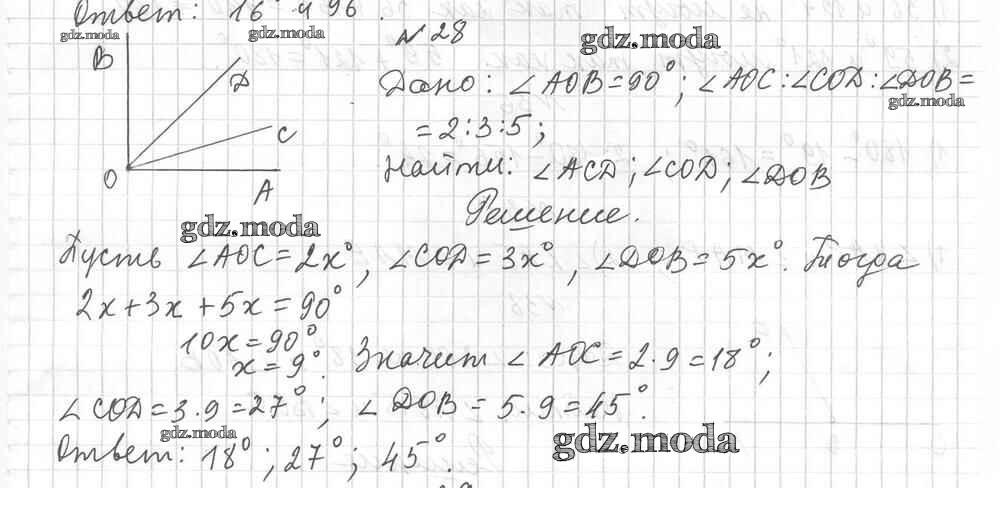 Ответ: 16° и 96°.
gdz.moda
gdz.moda
№ 28
gdz.moda
B
D
C
O
A
Дано: ∠AOB=90°; ∠AOC:∠COD:∠DOB=
gdz.moda
=2:3:5;
Найти: ∠ACD; ∠COD; ∠DOB
Решение.
gdz.moda
Пусть ∠AOC=2x°, ∠COD=3x°, ∠DOB=5x°. Тогда
2x+3x+5x=90°
10x=90°
x=9°. Значит ∠AOC=2·9=18°;
∠COD=3·9=27°; ∠DOB=5·9=45°.
gdz.moda
gdz.moda
Ответ: 18°; 27°; 45°.